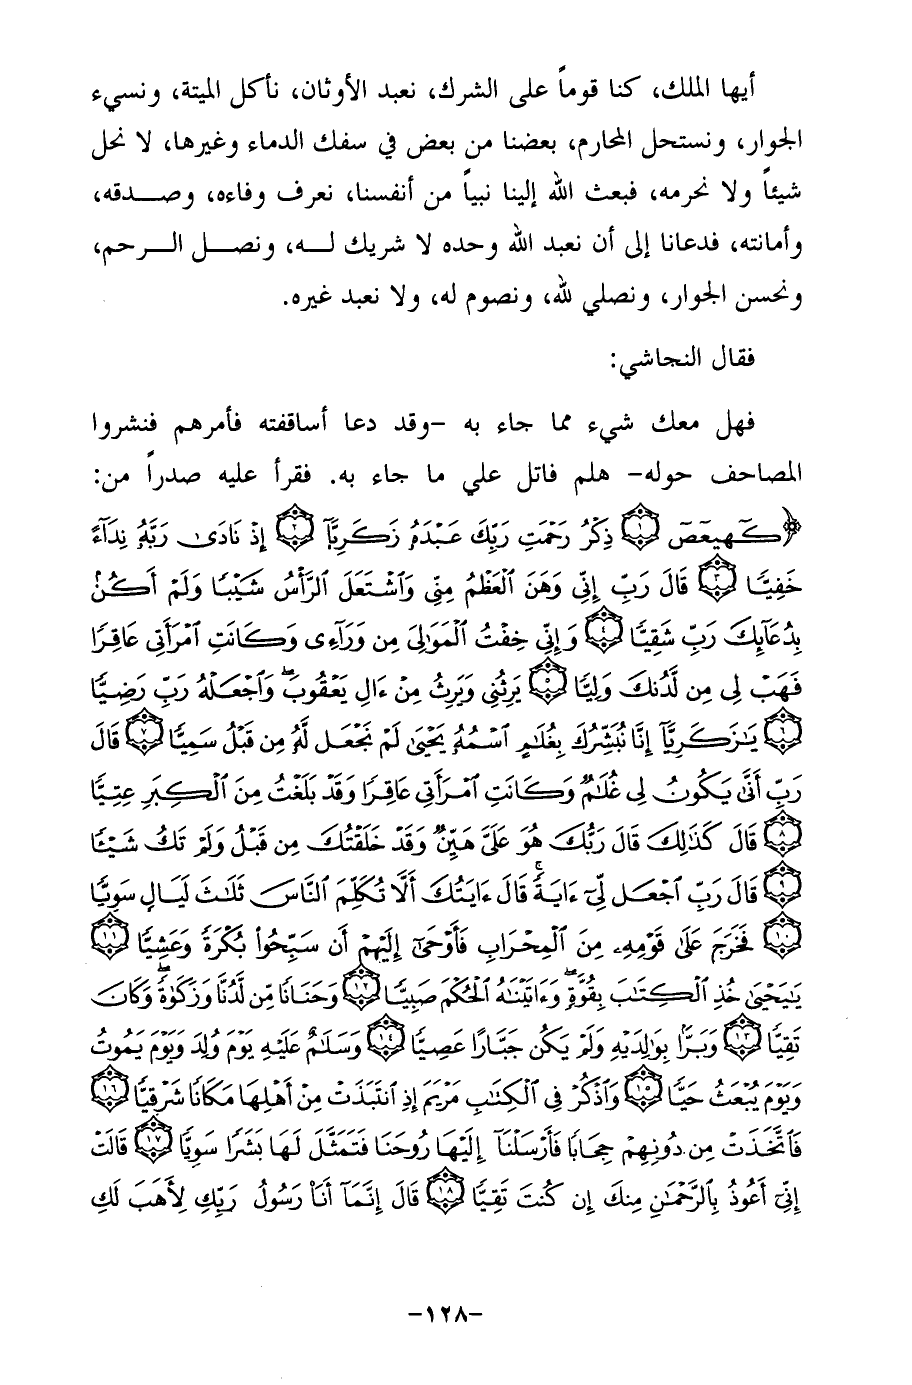 أيها الملك، كنا قوماً على الشرك، نعبد الأوثان، نأكل الميتة، ونسيء
الجوار، ونستحل المحارم، بعضنا من بعض في سفك الدماء وغيرها، لا نحل
شيئاً ولا نحرمه، فبعث الله إلينا نبياً من أنفسنا، نعرف وفاءه، وصدقه،
وأمانته، فدعانا إلى أن نعبد الله وحده لا شريك له، ونصل الرحم،
ونحسن الجوار، ونصلي لله، ونصوم له، ولا نعبد غيره.
فقال النجاشي:
فهل معك شيء مما جاء به -وقد دعا أساقفته فأمرهم فنشروا
المصاحف حوله- هلم فاتل علي ما جاء به. فقرأ عليه صدراً من:
﴿كٓهيعٓصٓ ١ ذِكْرُ رَحْمَتِ رَبِّكَ عَبْدَهُۥ زَكَرِيَّآ ٢ إِذْ نَادَىٰ رَبَّهُۥ نِدَآءً
خَفِيًّا ٣ قَالَ رَبِّ إِنِّي وَهَنَ ٱلْعَظْمُ مِنِّي وَٱشْتَعَلَ ٱلرَّأْسُ شَيْبًا وَلَمْ أَكُنۢ
بِدُعَآئِكَ رَبِّ شَقِيًّا ٤ وَإِنِّي خِفْتُ ٱلْمَوَٰلِيَ مِن وَرَآءِى وَكَانَتِ ٱمْرَأَتِي عَاقِرًا
فَهَبْ لِي مِن لَّدُنكَ وَلِيًّا ٥ يَرِثُنِي وَيَرِثُ مِنْ ءَالِ يَعْقُوبَ ۖ وَٱجْعَلْهُ رَبِّ رَضِيًّا
٦ يَٰزَكَرِيَّآ إِنَّا نُبَشِّرُكَ بِغُلَٰمٍ ٱسْمُهُۥ يَحْيَىٰ لَمْ نَجْعَل لَّهُۥ مِن قَبْلُ سَمِيًّا ٧ قَالَ
رَبِّ أَنَّىٰ يَكُونُ لِي غُلَٰمٌ وَكَانَتِ ٱمْرَأَتِي عَاقِرًا وَقَدْ بَلَغْتُ مِنَ ٱلْكِبَرِ عِتِيًّا
٨ قَالَ كَذَٰلِكَ قَالَ رَبُّكَ هُوَ عَلَيَّ هَيِّنٌ وَقَدْ خَلَقْتُكَ مِن قَبْلُ وَلَمْ تَكُ شَيْـًٔا
٩ قَالَ رَبِّ ٱجْعَل لِّيٓ ءَايَةً ۚ قَالَ ءَايَتُكَ أَلَّا تُكَلِّمَ ٱلنَّاسَ ثَلَٰثَ لَيَالٍ سَوِيًّا
١٠ فَخَرَجَ عَلَىٰ قَوْمِهِۦ مِنَ ٱلْمِحْرَابِ فَأَوْحَىٰٓ إِلَيْهِمْ أَن سَبِّحُوا۟ بُكْرَةً وَعَشِيًّا ١١
يَٰيَحْيَىٰ خُذِ ٱلْكِتَٰبَ بِقُوَّةٍ ۖ وَءَاتَيْنَٰهُ ٱلْحُكْمَ صَبِيًّا ١٢ وَحَنَانًا مِّن لَّدُنَّا وَزَكَوٰةً ۖ وَكَانَ
تَقِيًّا ١٣ وَبَرًّۢا بِوَٰلِدَيْهِ وَلَمْ يَكُن جَبَّارًا عَصِيًّا ١٤ وَسَلَٰمٌ عَلَيْهِ يَوْمَ وُلِدَ وَيَوْمَ يَمُوتُ
وَيَوْمَ يُبْعَثُ حَيًّا ١٥ وَٱذْكُرْ فِي ٱلْكِتَٰبِ مَرْيَمَ إِذِ ٱنتَبَذَتْ مِنْ أَهْلِهَا مَكَانًا شَرْقِيًّا ١٦
فَٱتَّخَذَتْ مِن دُونِهِمْ حِجَابًا فَأَرْسَلْنَآ إِلَيْهَا رُوحَنَا فَتَمَثَّلَ لَهَا بَشَرًا سَوِيًّا ١٧ قَالَتْ
إِنِّيٓ أَعُوذُ بِٱلرَّحْمَٰنِ مِنكَ إِن كُنتَ تَقِيًّا ١٨ قَالَ إِنَّمَآ أَنَا۠ رَسُولُ رَبِّكِ لِأَهَبَ لَكِ
-١٢٨-